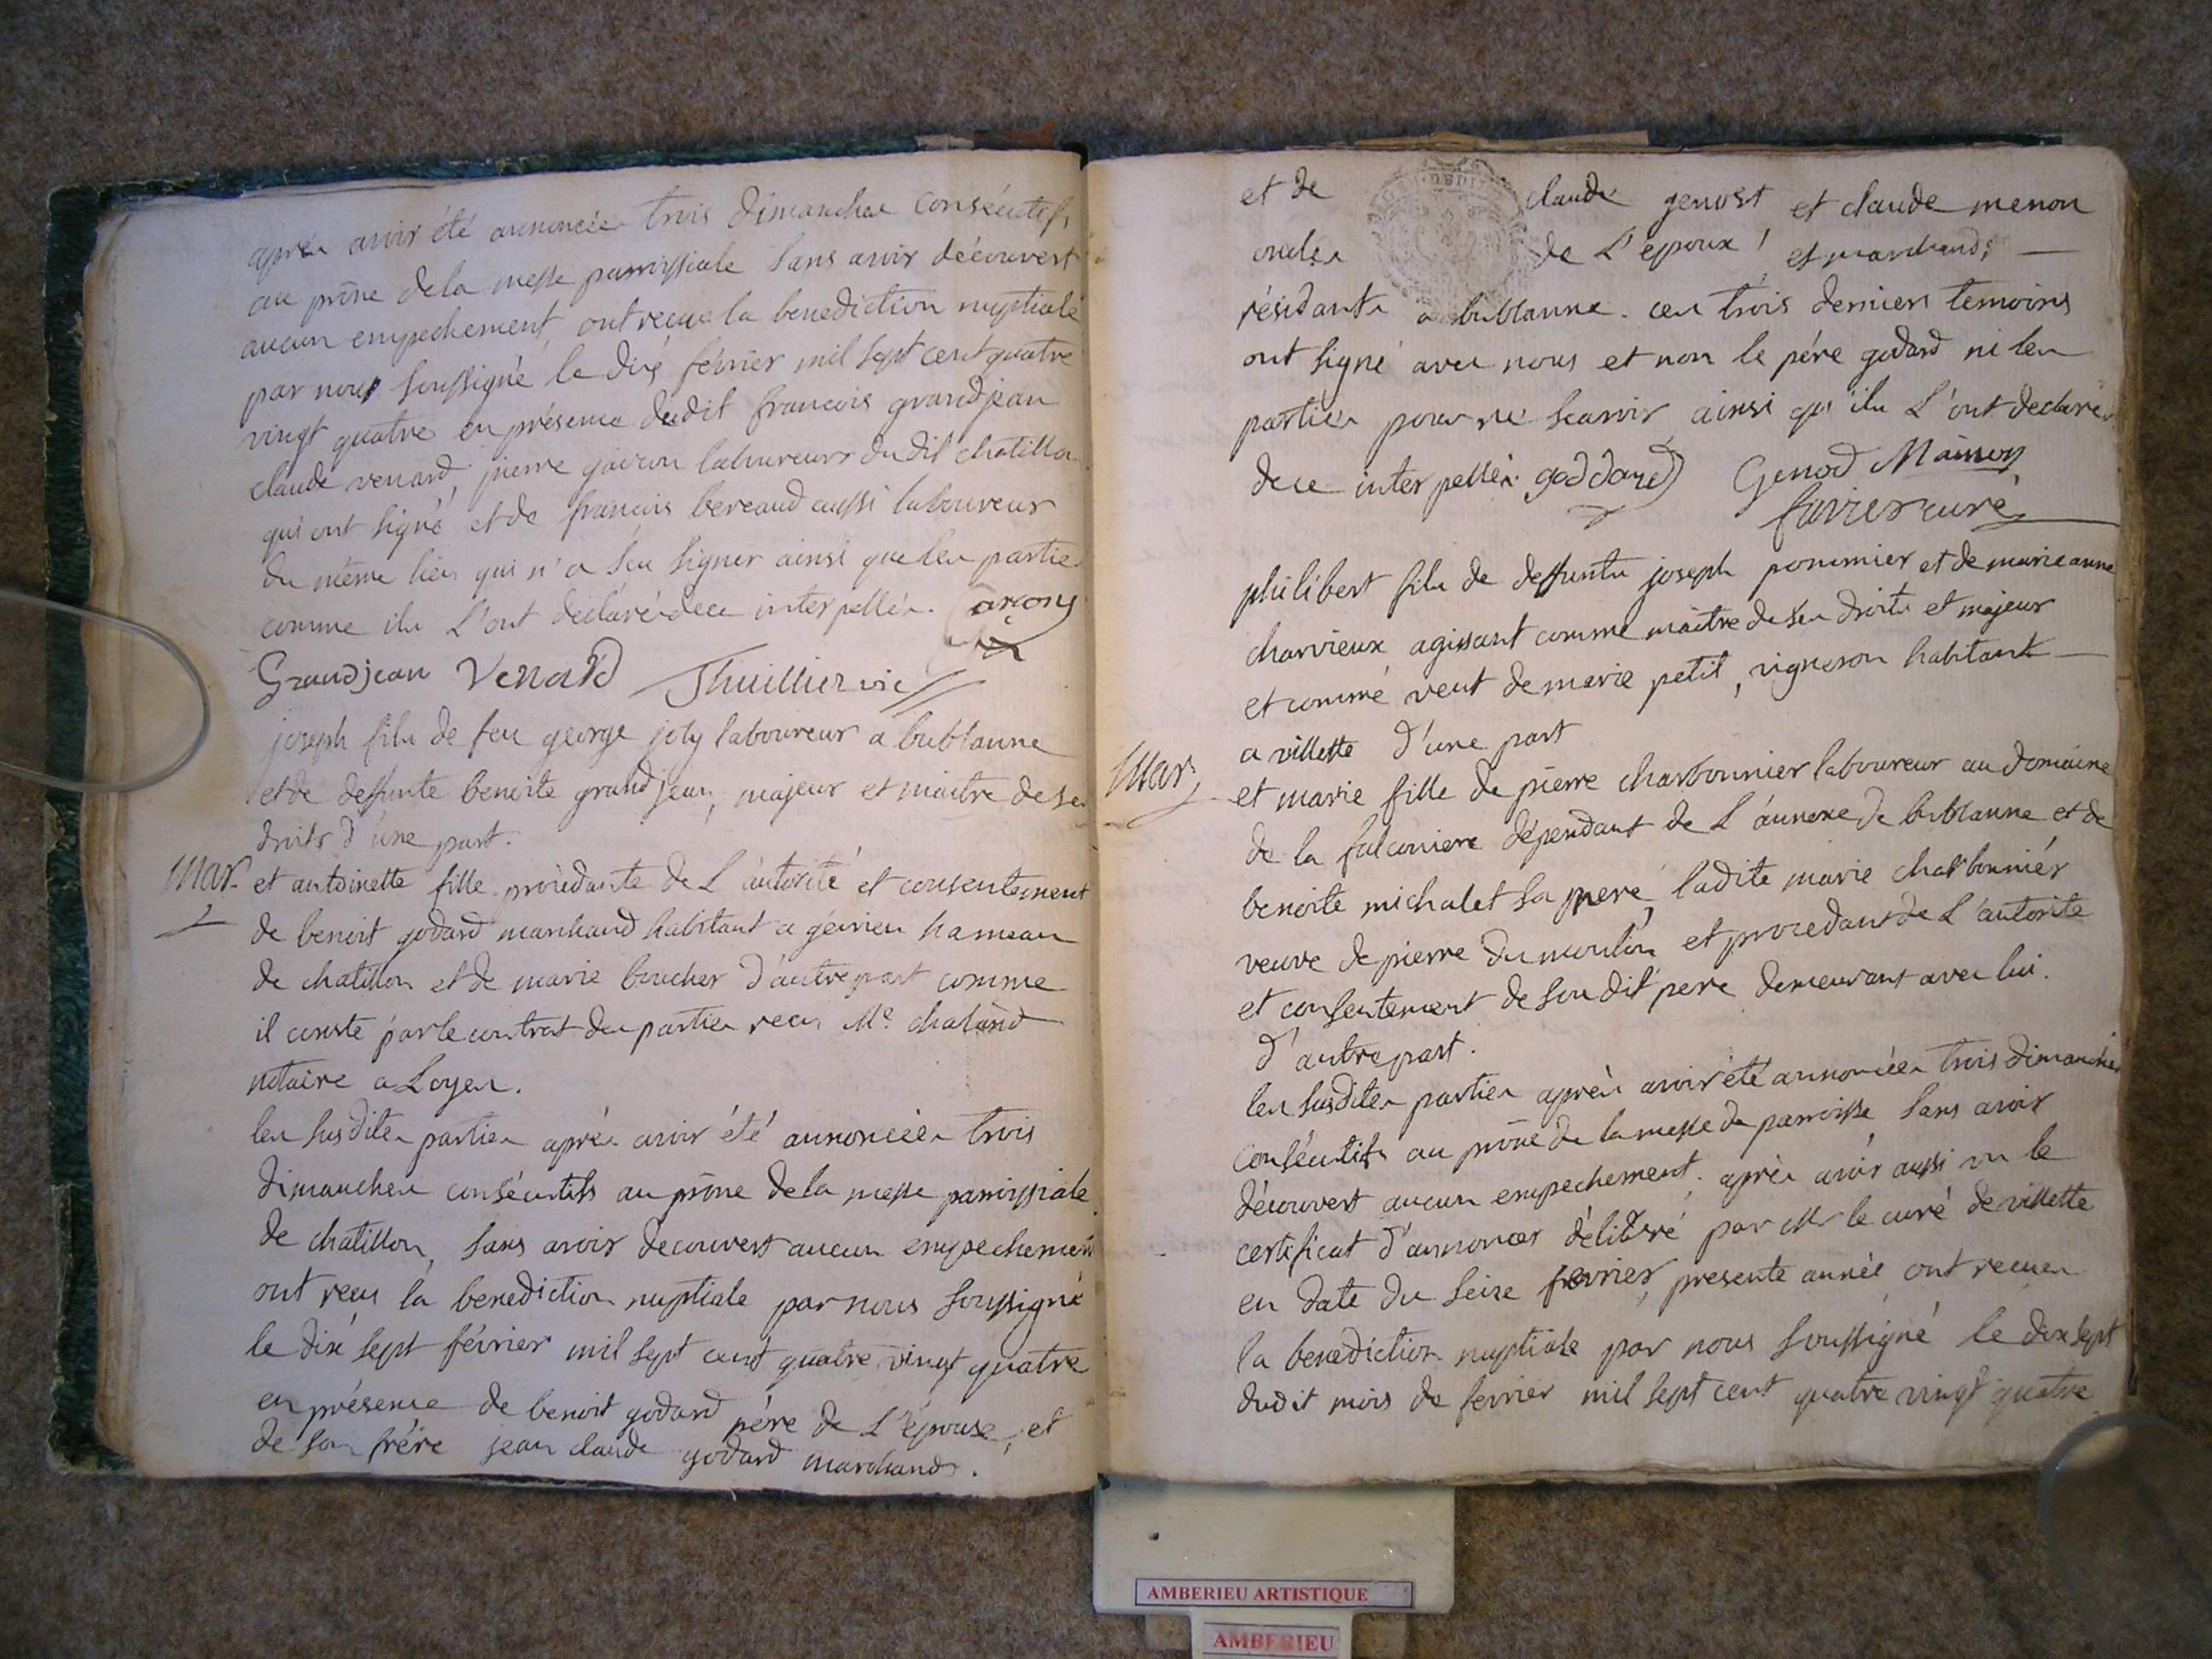 après avoir été annoncées trois dimanches consécutifs
au prône de la messe parroissiale sans avoir découvert
aucun empechement, ont reçue la benediction nuptiale
par nous soussigné le dix février mil sept cent quatre
vingt quatre en présence dudit francois grandjean
claude venard, pierre laboureurs dudit chatillon
qui ont signé et de francois bereaud aussi laboureur
du même lieu qui n'a seu signer ainsi que les parties
comme ils l'ont déclaré de ce interpellés.
Grandjean Venard Thuillier vic
joseph fils de feu george joly laboureur a bublanne
et de deffunte benoite grandjean, majeur et maitre de ses
droits d'une part.
Mar. et antoinette fille procédante de l'autorité et consentement
de benoit godard marchand habitant a gévrieu hameau
de chatillon et de marie boucher d'autre part comme
il conste par le contrat des parties reçu Me. chaland
notaire a Loyes.
les susdites parties après avoir été annoncées trois
dimanches consécutifs au prône de la messe parroissiale
de chatillon, sans avoir decouvert aucun empechement
ont reçu la benediction nuptiale par nous soussigné
le dix sept février mil sept cent quatre vingt quatre
en présence de benoit godard père de l'épouse, et
de son frére jean claude godard marchands.
et de claude genost et claude menon
oncles de l'epoux, et marchands
résidants a bublanne. ces trois derniers temoins
ont signé avec nous et non le pére godard ni les
parties pour ne scavoir ainsi qu'ils l'ont declaré
de ce interpellés. goddard Genod Mainon
favier curé
philibert fils de deffunts joseph pommier et de marie anne
charvieux agissant comme maitre de ses droits et majeur
et comme veuf de marie petit, vigneron habitant
a villette d'une part
Mar. et marie fille de pierre charbonnier laboureur au domaine
de la falconiere dépendant de l'annexe de bublanne et de
benoite michalet sa mere, ladite marie charbonnier
veuve de pierre dumoulin et procedant de l'autorite
et consentement de son dit pere demeurant avec lui.
d'autre part.
les susdites parties après avoir été annoncées trois dimanches
consécutifs au prône de la messe de parroisse sans avoir
découvert aucun empechement. après avoir aussi vu le
certificat d'annonces délibvré par Mr le curé de villette
en date du seize fevrier, presente année ont recues
la benediction nuptiale par nous soussigné le dix sept
dudit mois de fevrier mil sept cent quatre vingt quatre
AMBERIEU ARTISTIQUE
AMBERIEU